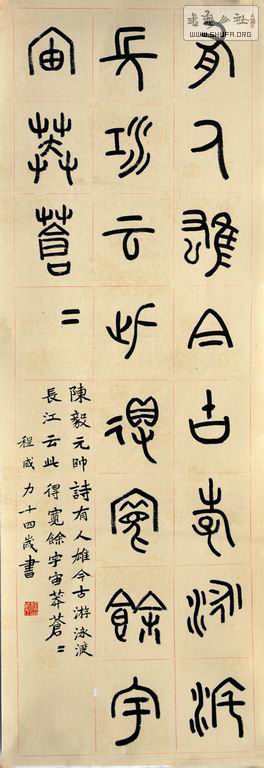 有人雄今古游泳渡
長江云此得寬餘宇
宙莽蒼〓
陳毅元帥詩有人雄今古游泳渡
長江云此得寬餘宇宙莽蒼〓
程力十四歲書
WWW.SHUFA.ORG